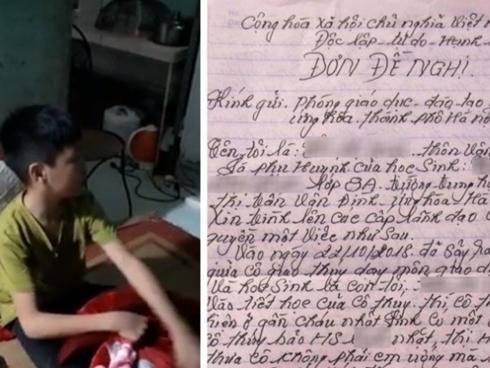 Cộng hòa xã hội chủ nghĩa Việt N
Độc lập - tự do - Hạnh
ĐƠN ĐỀ NGHỊ
Kính gửi. Phòng giáo dục - đào tạo
ứng hòa. thành phố Hà nội
Tên tôi là: thôn Vận
Là phụ Huynh của học Sinh:
lớp 8A. trường trung học
thị trấn Vân Đình, ứng hòa Hà
Xin trình lên các cấp lãnh đạo
quyền một việc như Sau.
Vào ngày 22/10/2018. đã Sảy ra
giữa cô giáo thủy dạy môn giáo dục
Và học Sinh là con tôi,
Vào tiết học của cô thủy. thì cô
hiện ở gần cháu nhất Sinh có một
cô thủy bảo HS nhất, thì H
thưa cô không phải em uống mà